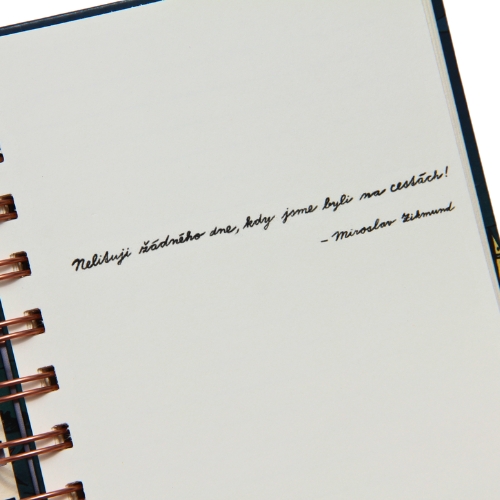 Nelituji žádného dne, kdy jsme byli na cestách!
- Miroslav Zikmund